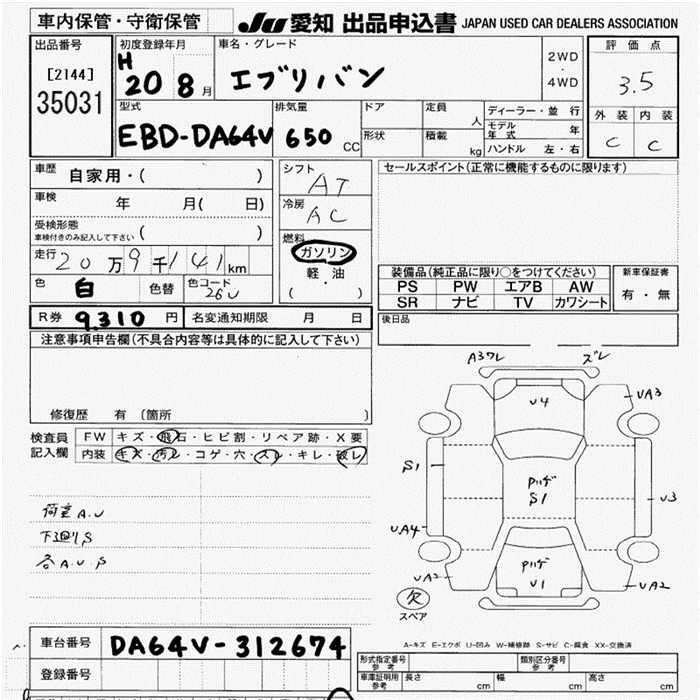 車内保管・守衛保管
JU 愛知 出品申込書 JAPAN USED CAR DEALERS ASSOCIATION
出品番号
[2144]
35031
初度登録年月
H
20 8月
車名・グレード
エブリバン
2WD
・
4WD
評価点
3.5
外装 内装
C C
型式
EBD-DA64V
排気量
650 CC
ドア
形状
定員
人
積載
kg
ディーラー・並行
モデル年式 年
ハンドル 左・右
車歴
自家用・( )
車検
年 月( 日)
受検形態
車検付きのみ記入して下さい ( )
走行
20万9千141km
色
白 色替
色コード
26U
シフト
AT
冷房
AC
燃料
ガソリン
・
軽油
・
( )
セールスポイント(正常に機能するものに限ります)
装備品(純正品に限り○をつけてください)
PS PW エアB AW
SR ナビ TV カワシート
新車保証書
有・無
後日品
R券 9.310円
名変通知期限 月 日
注意事項申告欄(不具合内容等は具体的に記入して下さい)
修復歴 有 〔箇所 〕
検査員
記入欄
FW キズ・飛石・ヒビ割・リペア跡・X要
内装 キズ・汚レ・コゲ・穴・スレ・キレ・破レ
荷室A.U
下廻りS
各A.U.S
A3ワレ ズレ
U4
UA3
S1
Pハゲ
S1
U3
UA4
Pハゲ
U1
UA2
UA2
欠
スペア
A-キズ E-エクボ U-凹み W-補修跡 S-サビ C-腐食 XX-交換済
車台番号 DA64V-312674
登録番号
形式指定番号
参考
類別区分番号
参考
車庫証明用
参考
長さ cm 幅 cm 高さ cm